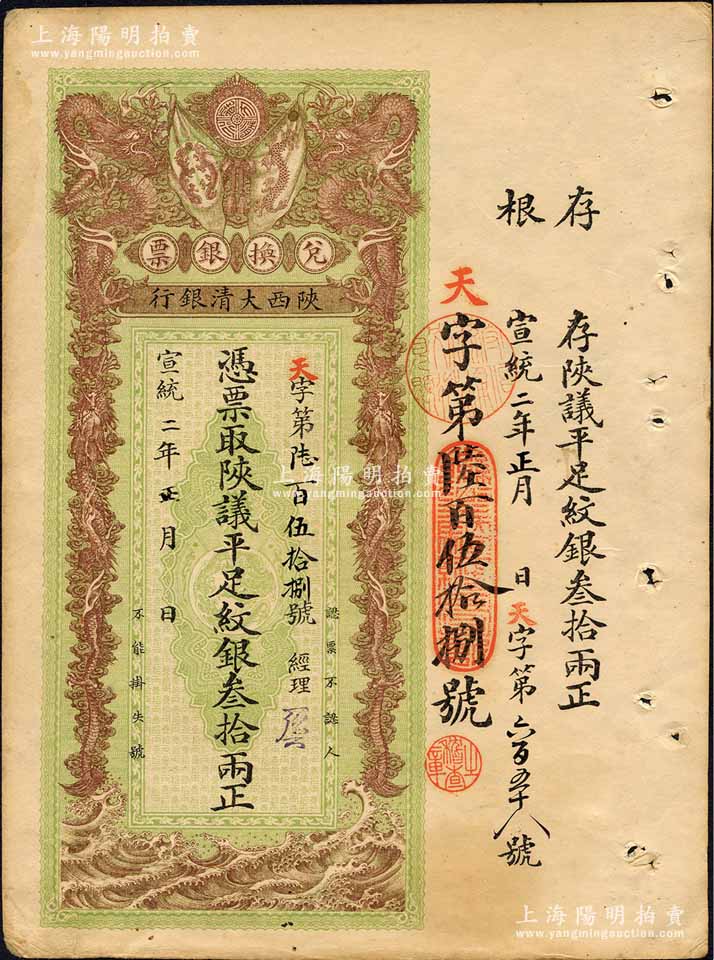 上海陽明拍賣
www.yangmingauction.com
存根
存陝議平足紋銀叁拾兩正
宣統二年正月 日天字第六百五十八號
天字第陸百伍拾捌號
兌換銀票
陝西大清銀行
天字第陸百伍拾捌號 經理
憑票取陝議平足紋銀叁拾兩正
宣統二年正月 日
認票不認人
不能掛失號
上海陽明拍賣
www.yangmingauction.com
上海陽明拍賣
www.yangmingauction.com